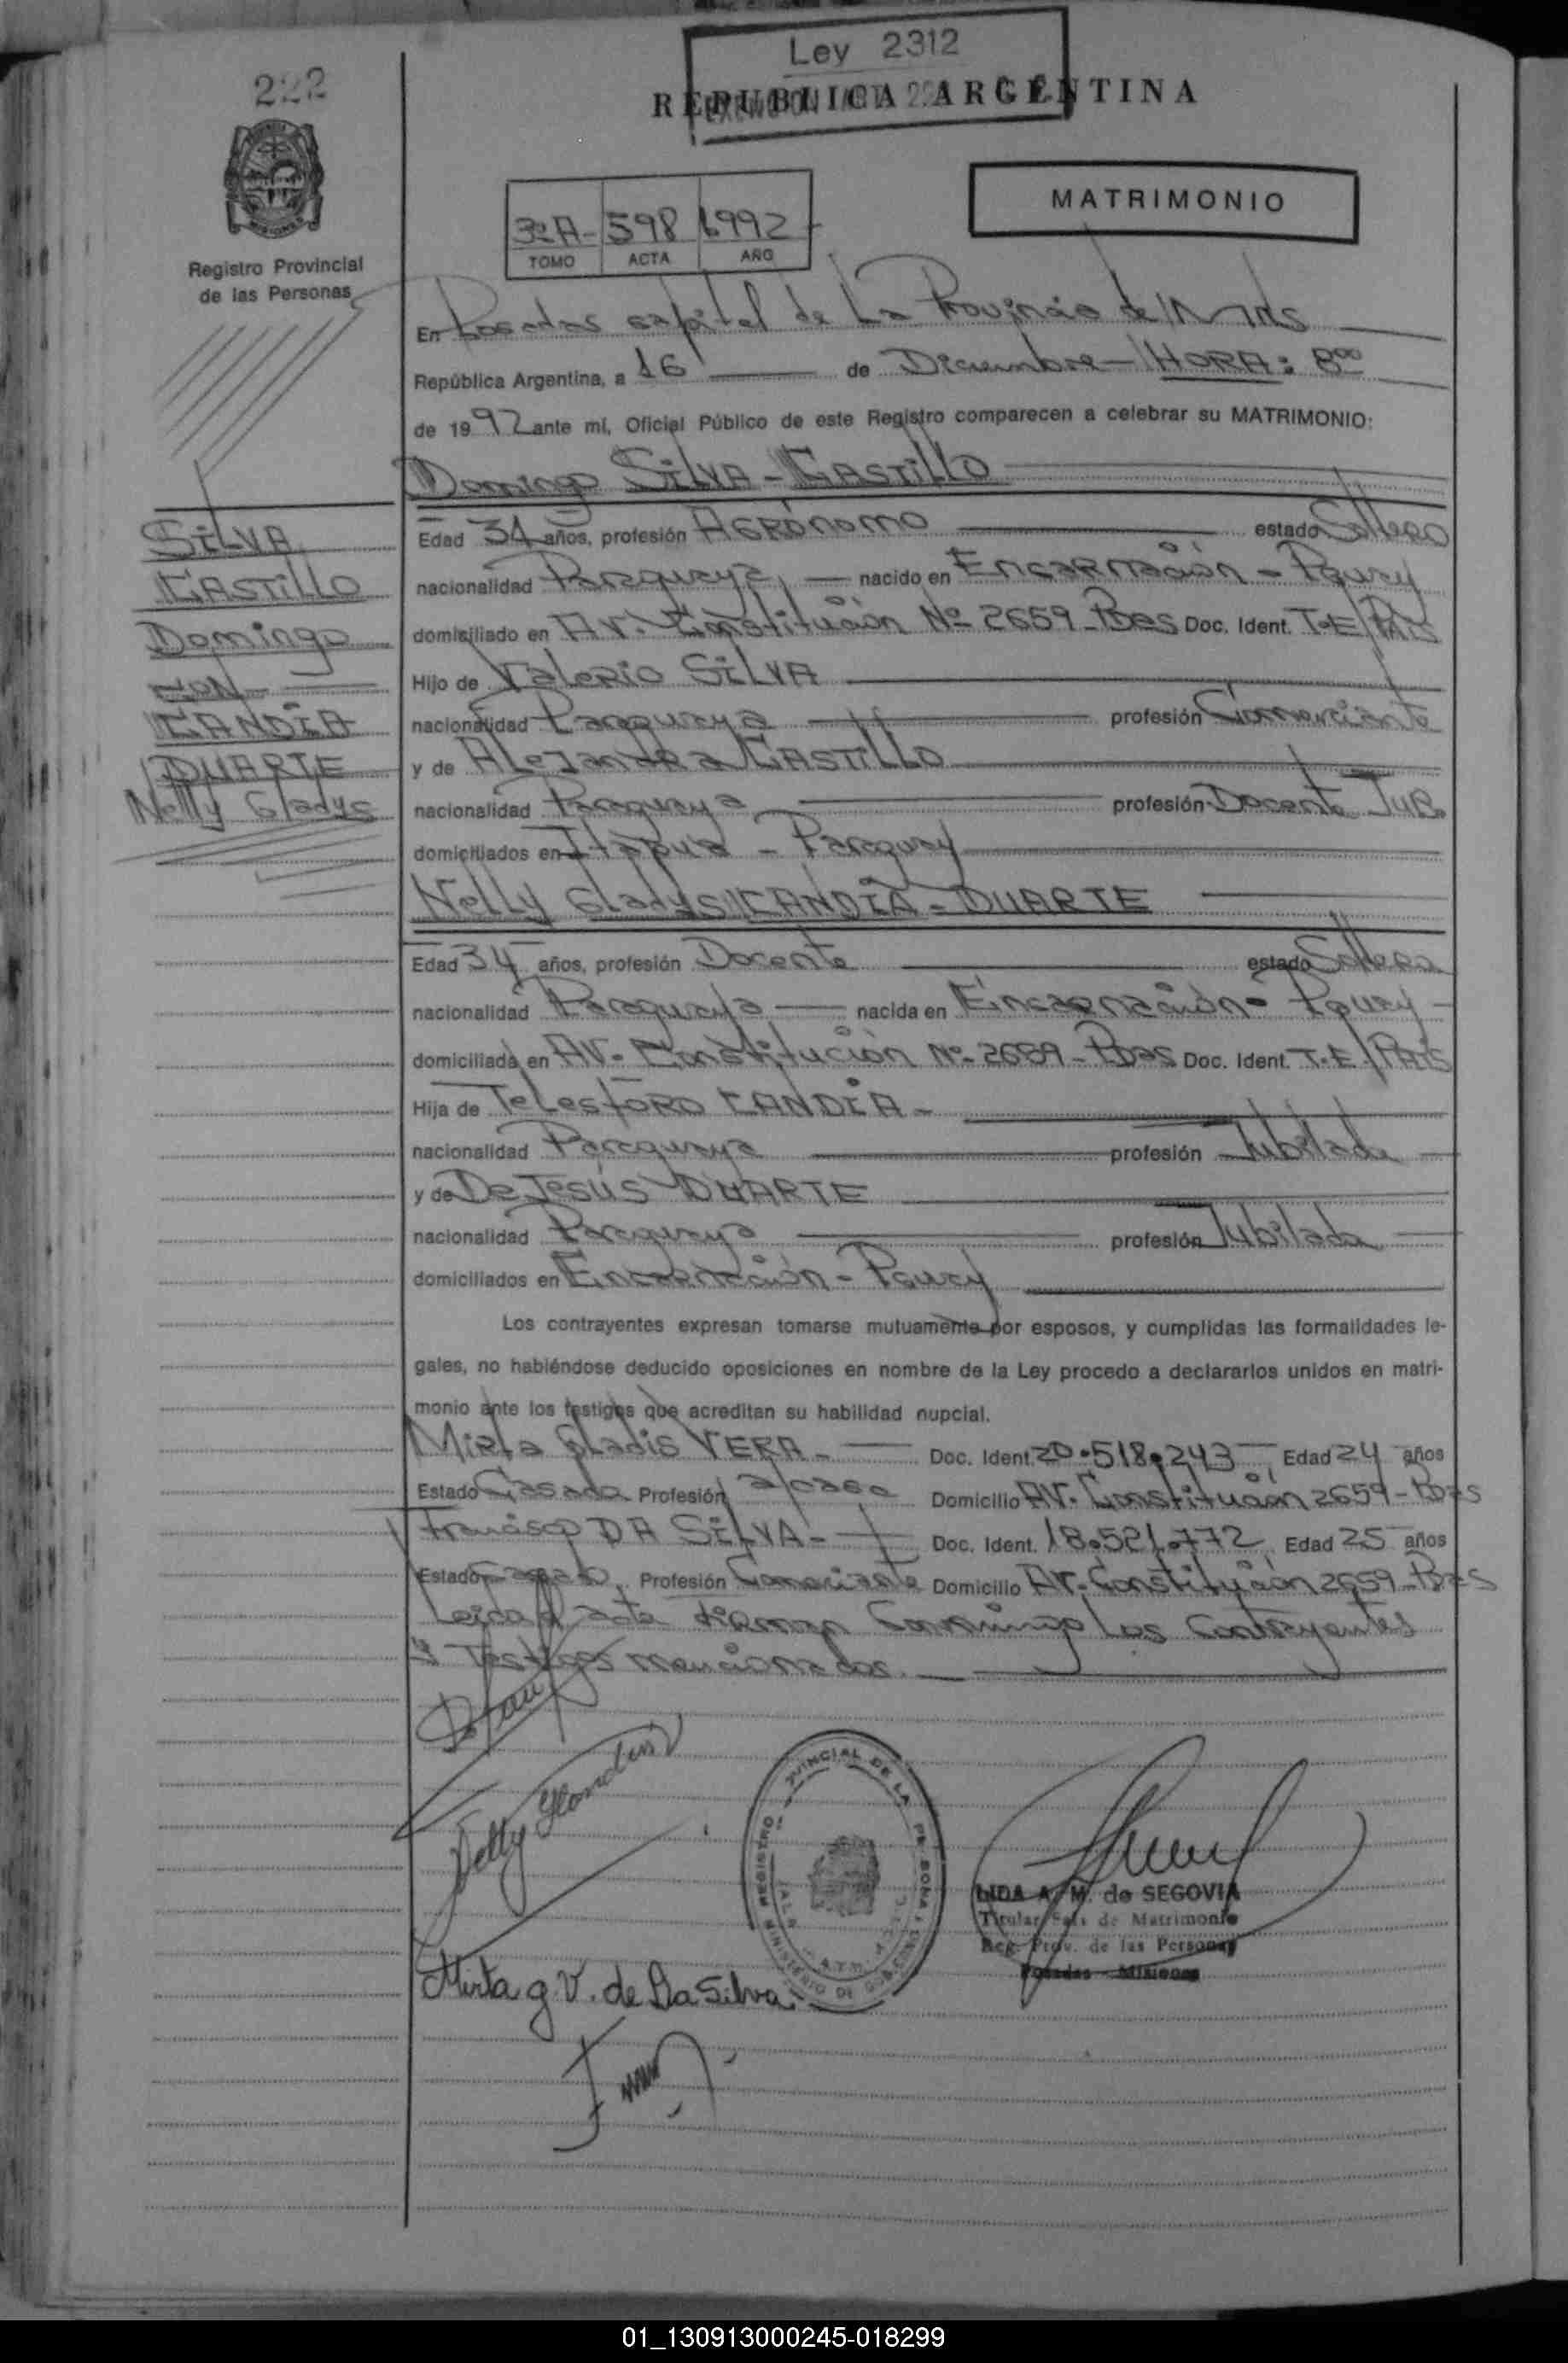 222
Ley 2312
REPUBLICA ARGENTINA
MATRIMONIO
3ºA- 598 1992
TOMO ACTA AÑO
Registro Provincial
de las Personas
En Posadas capital de La Provincia de Mnes
República Argentina, a 16 de Diciembre - HORA: 8⁰⁰
de 1992 ante mí, Oficial Público de este Registro comparecen a celebrar su MATRIMONIO:
Domingo SILVA - CASTILLO
SILVA
CASTILLO
Domingo
CON
CANDIA
DUARTE
Nelly Gladys
Edad 34 años, profesión AGRÓNOMO estado Soltero
nacionalidad Paraguaya nacido en Encarnación - Pguay
domiciliado en AV. Constitución Nº 2659 - Pdas Doc. Ident. T.E/PAIS
Hijo de Valerio SILVA
nacionalidad Paraguaya profesión Comerciante
y de Alejandra CASTILLO
nacionalidad Paraguaya profesión Docente Jub.
domiciliados en Itapua - Paraguay
Nelly Gladys CANDIA - DUARTE
Edad 34 años, profesión Docente estado Soltera
nacionalidad Paraguaya nacida en Encarnación - Pguay
domiciliada en AV. Constitución Nº 2659 - Pdas Doc. Ident. T.E./PAIS
Hija de Telesforo CANDIA -
nacionalidad Paraguaya profesión Jubilado
y de De Jesus DUARTE
nacionalidad Paraguaya profesión Jubilada
domiciliados en Encarnación - Pguay
Los contrayentes expresan tomarse mutuamente por esposos, y cumplidas las formalidades le-
gales, no habiéndose deducido oposiciones en nombre de la Ley procedo a declararlos unidos en matri-
monio ante los testigos que acreditan su habilidad nupcial.
Mirta Gladis VERA - Doc. Ident. 20.518.243 Edad 24 años
Estado Casada Profesión a/casa Domicilio AV. Constitución 2659 - Pdas
Francisco DA SILVA - Doc. Ident. 18.521.772 Edad 25 años
Estado Casado Profesión Comerciante Domicilio AV. Constitución 2659 - Pdas
Leida el acta firman Conmigo Los Contrayentes
y Testigos mencionados.
Nelly
Mirta G. V. de Da Silva
LIDA A. M. de SEGOVIA
Titular Sala de Matrimonio
Reg. Prov. de las Personas
Posadas - Misiones
01_130913000245-018299